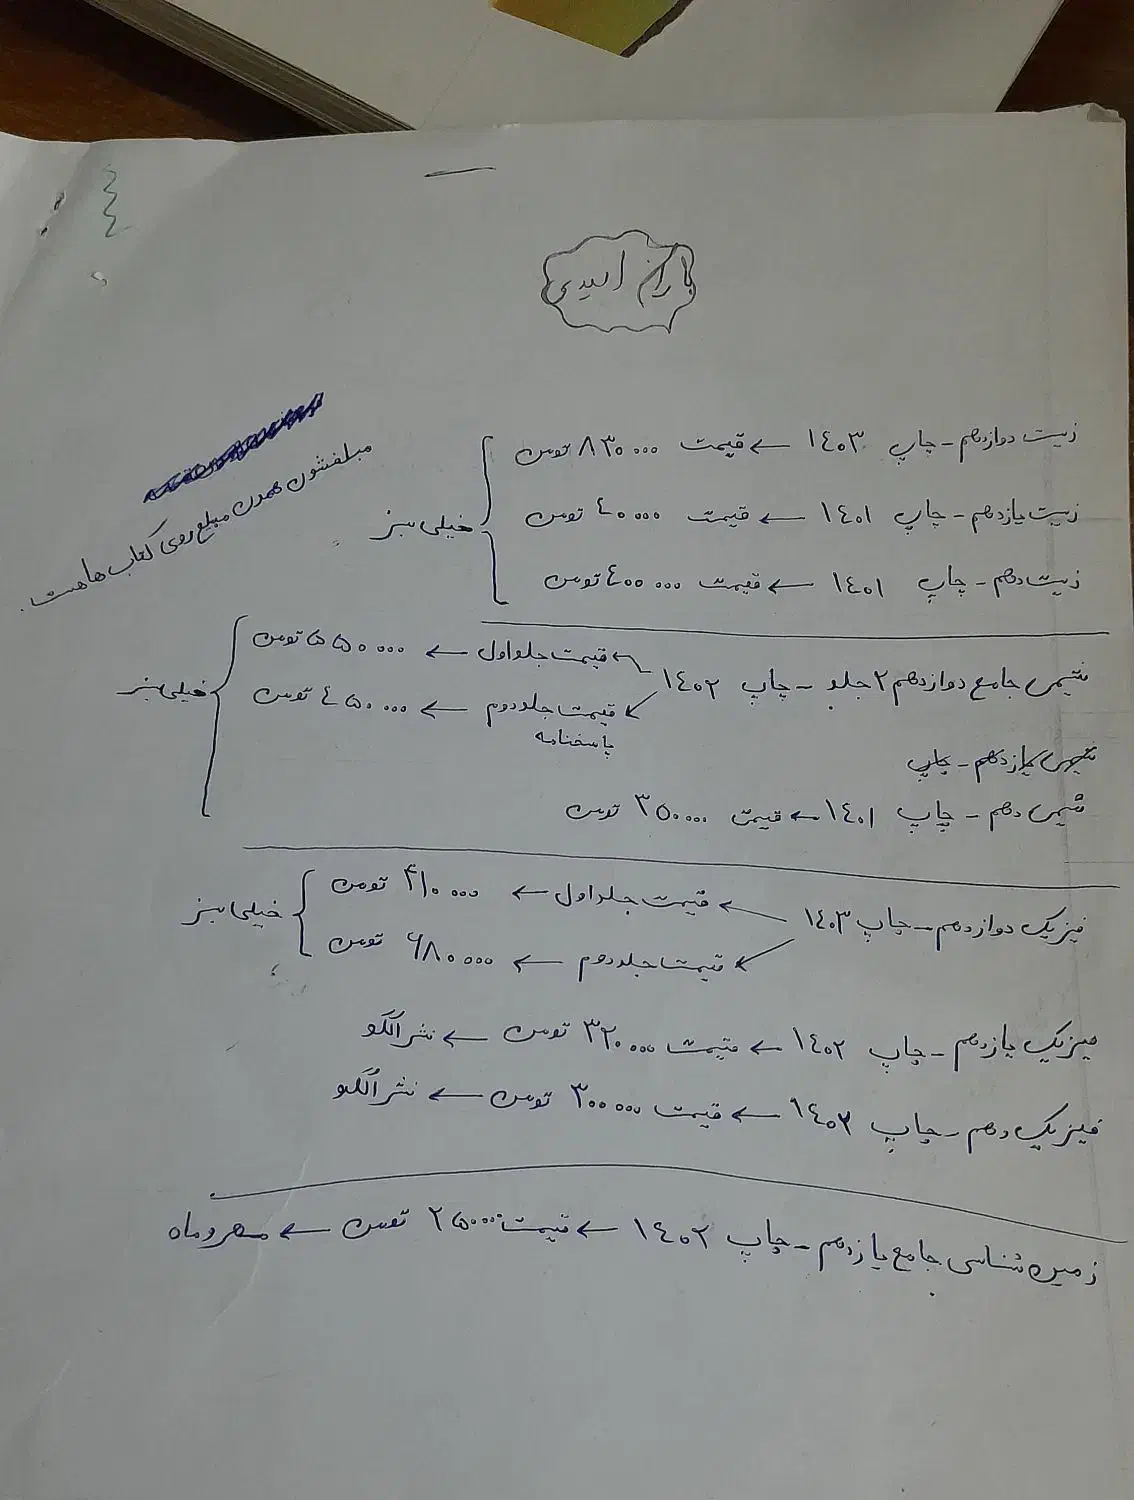 باران امیدی
زیست دوازدهم - چاپ ۱٤۰۳ ← قیمت ۸۳۰۰۰۰ تومن
زیست یازدهم - چاپ ۱٤۰۱ ← قیمت ٤۰۰۰۰۰ تومن
زیست دهم - چاپ ۱٤۰۱ ← قیمت ٤۰۰۰۰۰ تومن
خیلی سبز
مبلغشون همون مبلغ روی کتاب ها هست.
شیمی جامع دوازدهم ۲ جلد - چاپ ۱٤۰۲
← قیمت جلد اول ← ۵۵۰۰۰۰ تومن
← قیمت جلد دوم ← ٤۵۰۰۰۰ تومن
پاسخنامه
خیلی سبز
شیمی یازدهم - چاپ
شیمی دهم - چاپ ۱٤۰۱ ← قیمت ۳۵۰۰۰۰ تومن
فیزیک دوازدهم - چاپ ۱٤۰۳
← قیمت جلد اول ← ۴۱۰۰۰۰ تومن
← قیمت جلد دوم ← ۶۸۰۰۰۰ تومن
خیلی سبز
فیزیک یازدهم - چاپ ۱٤۰۲ ← قیمت ۳۲۰۰۰۰ تومن ← نشر الگو
فیزیک دهم - چاپ ۱٤۰۲ ← قیمت ۳۰۰۰۰۰ تومن ← نشر الگو
زمین شناسی جامع یازدهم - چاپ ۱٤۰۲ ← قیمت ۲۵۰۰۰۰ تومن ← مهر و ماه